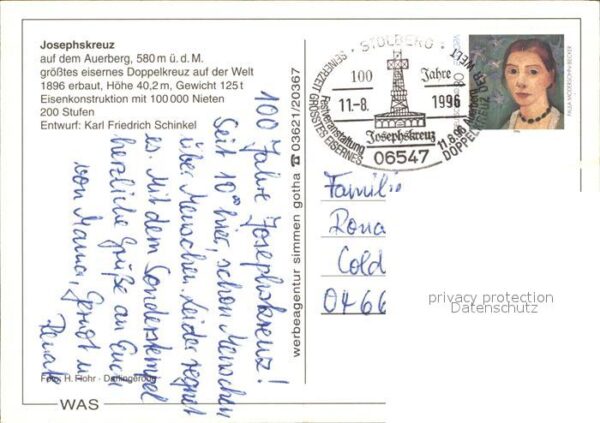 Josephskreuz
auf dem Auerberg, 580 m ü. d. M.
größtes eisernes Doppelkreuz auf der Welt
1896 erbaut, Höhe 40,2 m, Gewicht 125 t
Eisenkonstruktion mit 100 000 Nieten
200 Stufen
Entwurf: Karl Friedrich Schinkel
100 Jahre Josephskreuz!
Seit 10⁰⁰ hier, schon Menschen
über Menschen. Leider regnet
es. Mit dem Sonderstempel
herzliche Grüße an Euch
von Mama, Gernot u.
Renate
Foto: H. Flohr · Darlingerode
WAS
werbeagentur simmen gotha ☎ 03621/20367
STOLBERG
100 Jahre
11.-8. 1996
Josephskreuz
06547
SEINERZEIT GRÖSSTES EISERNES
DOPPELKREUZ DER WELT
Festveranstaltung
11.8.96
PAULA MODERSOHN-BECKER
Famili
Rona
Cold
0466
privacy protection
Datenschutz